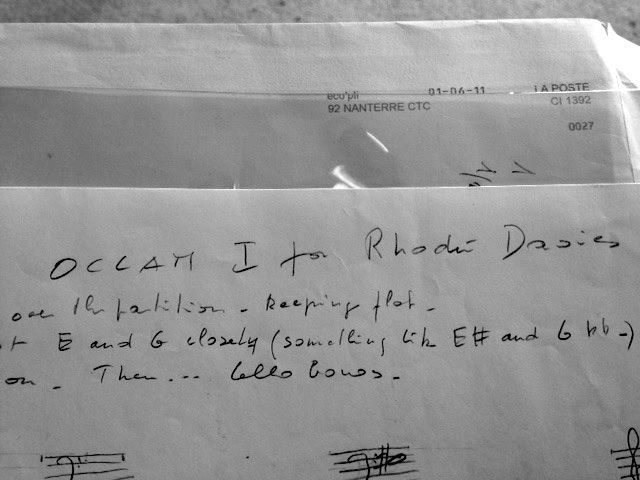 eco'pli 01-06-11 LA POSTE
92 NANTERRE CTC CI 1392
0027
OCCAM I for Rhodri Davies
over the partition - keeping flat -
E and G closely (something like E# and G bb -)
on - Then... Cello bows -